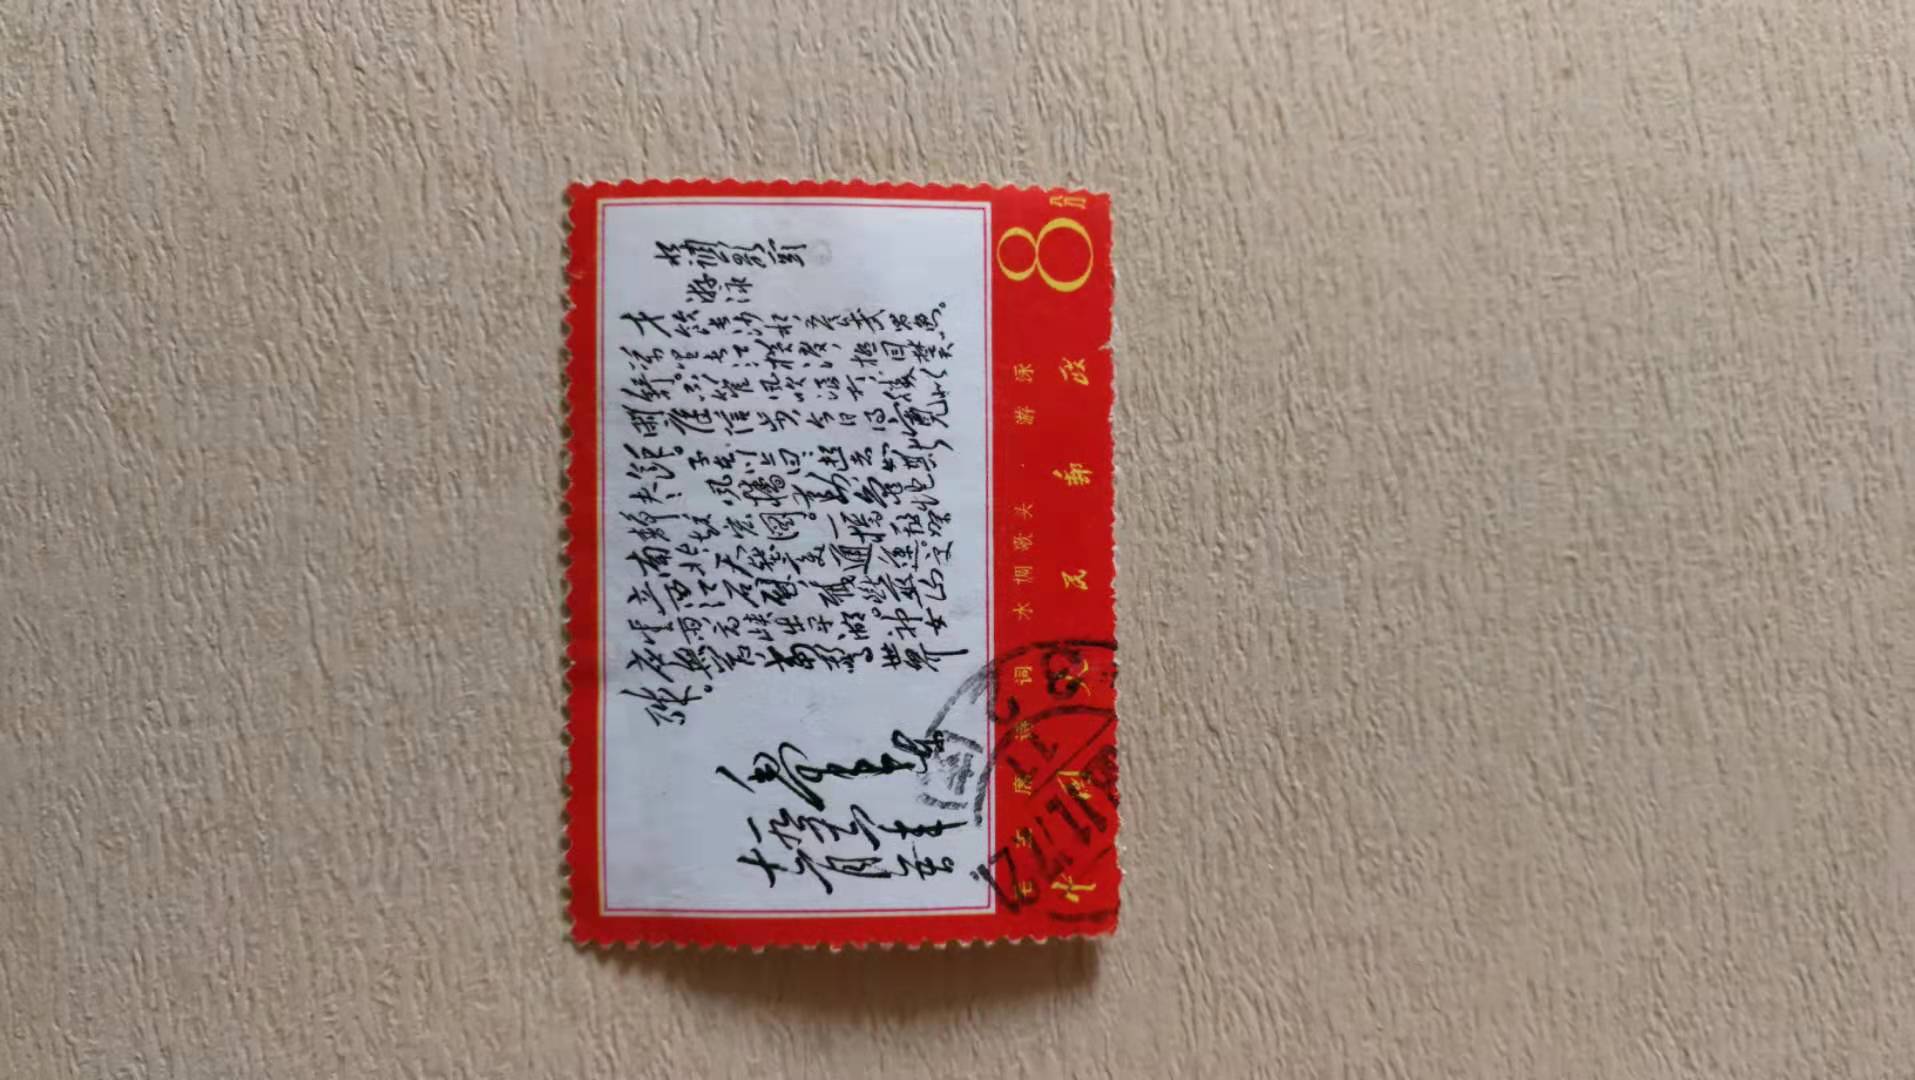 水调歌头
游泳
才饮长沙水,又食武昌鱼。
万里长江横渡,极目楚天
舒。不管风吹浪打,胜似
闲庭信步,今日得宽馀。
子在川上曰:逝者如斯
夫。风樯动,龟蛇
静,起宏图。一桥飞架
南北,天堑变通途。更
立西江石壁,截断巫山
云雨,高峡出平湖。神女
应无恙,当惊世界
殊。
毛泽东
一九五六年
十二月
毛主席诗词 水调歌头·游泳
中国人民邮政 8分